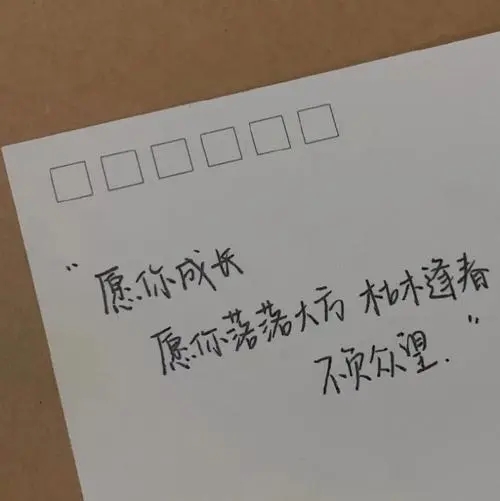 “愿你成长
愿你落落大方 枯木逢春
不负众望.”